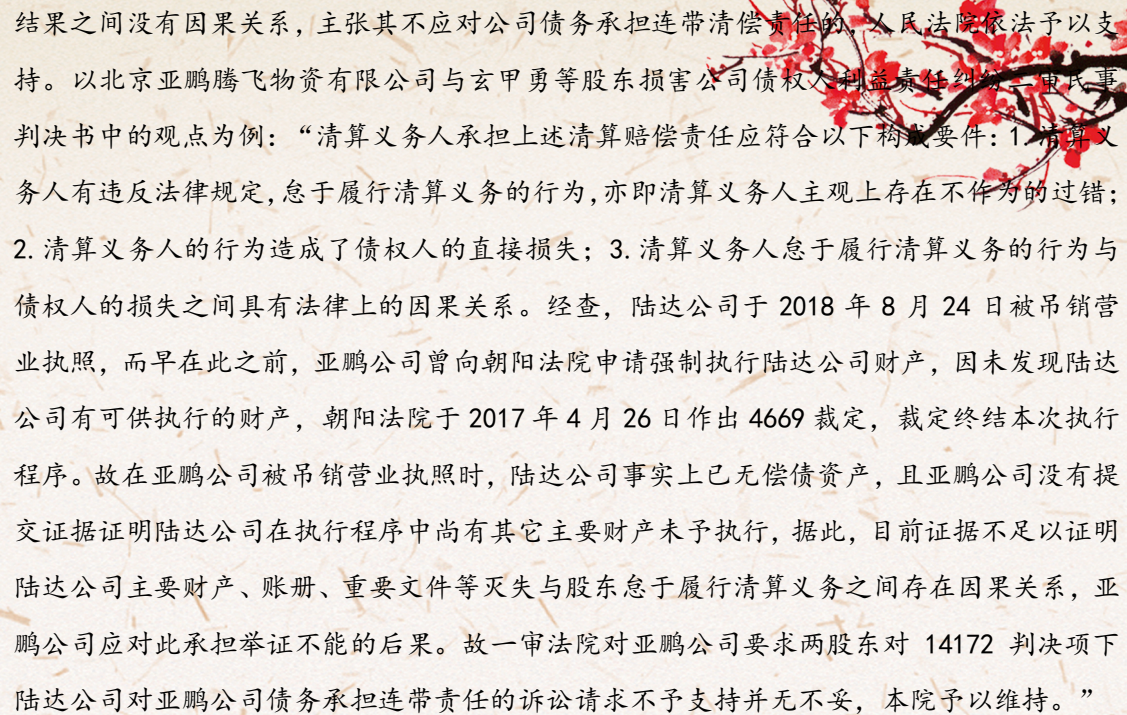 结果之间没有因果关系，主张其不应对公司债务承担连带清偿责任的，人民法院依法予以支
持。以北京亚鹏腾飞物资有限公司与玄甲勇等股东损害公司债权人利益责任纠纷二审民事
判决书中的观点为例：“清算义务人承担上述清算赔偿责任应符合以下构成要件：1.清算义
务人有违反法律规定，怠于履行清算义务的行为，亦即清算义务人主观上存在不作为的过错；
2.清算义务人的行为造成了债权人的直接损失；3.清算义务人怠于履行清算义务的行为与
债权人的损失之间具有法律上的因果关系。经查，陆达公司于 2018 年 8 月 24 日被吊销营
业执照，而早在此之前，亚鹏公司曾向朝阳法院申请强制执行陆达公司财产，因未发现陆达
公司有可供执行的财产，朝阳法院于 2017 年 4 月 26 日作出 4669 裁定，裁定终结本次执行
程序。故在亚鹏公司被吊销营业执照时，陆达公司事实上已无偿债资产，且亚鹏公司没有提
交证据证明陆达公司在执行程序中尚有其它主要财产未予执行，据此，目前证据不足以证明
陆达公司主要财产、账册、重要文件等灭失与股东怠于履行清算义务之间存在因果关系，亚
鹏公司应对此承担举证不能的后果。故一审法院对亚鹏公司要求两股东对 14172 判决项下
陆达公司对亚鹏公司债务承担连带责任的诉讼请求不予支持并无不妥，本院予以维持。”